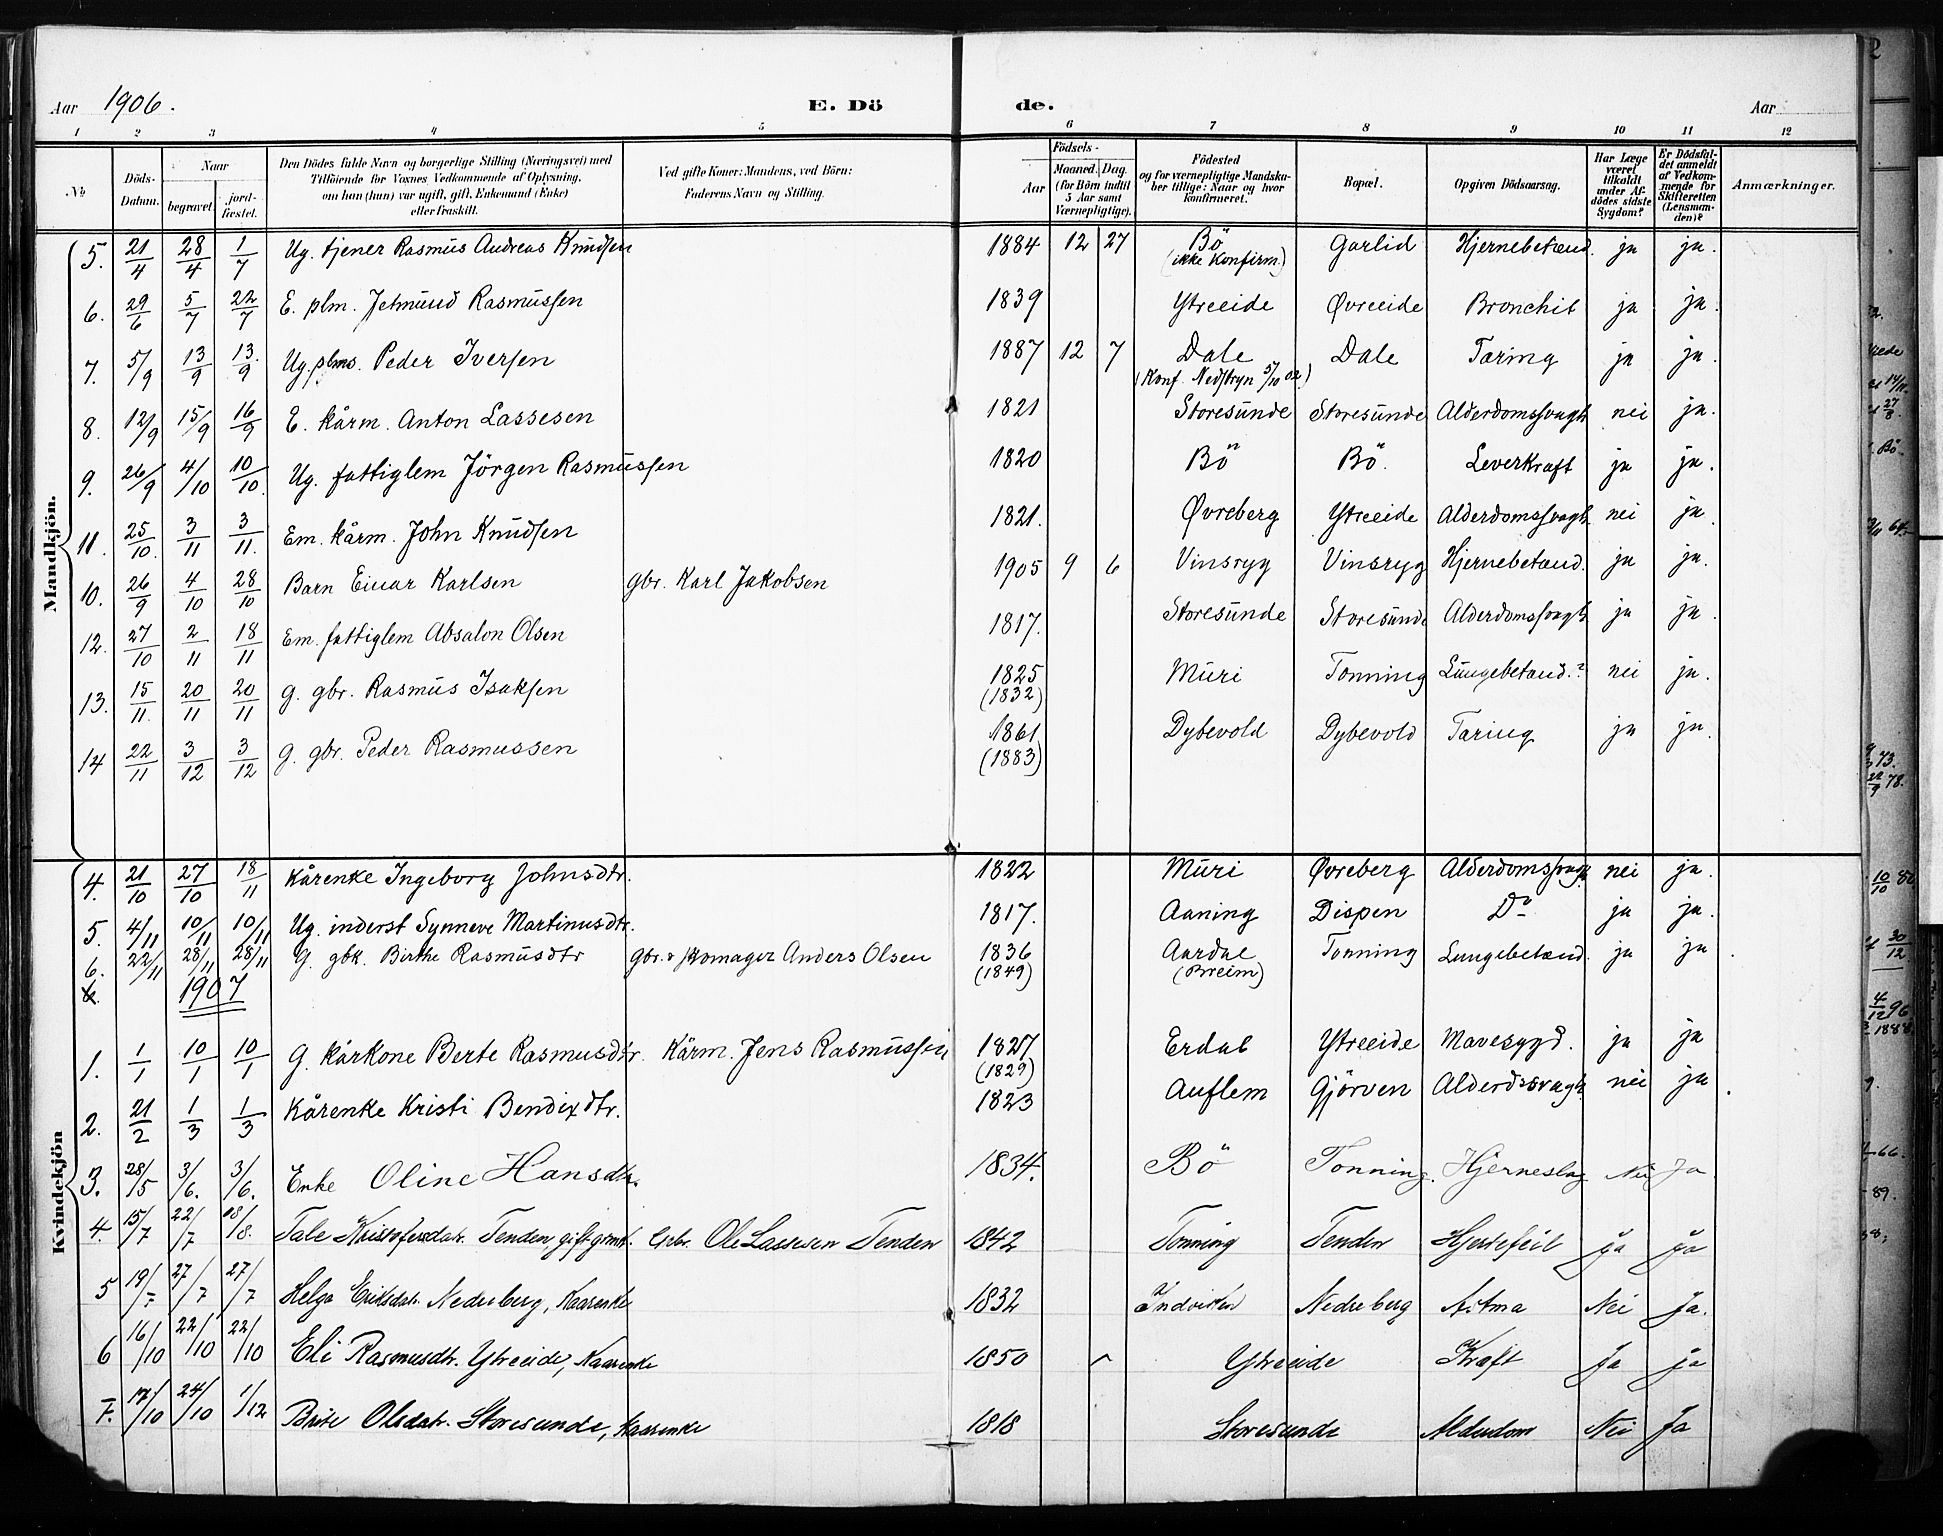 Aar 1906. E. Dö de. Aar
1 2 3 4 5 6 7 8 9 10 11 12
No
Döds-Datum.
Naar
begravet.
jord-fæstet.
Den Dödes fulde Navn og borgerlige Stilling (Næringsvei) med
Tilföiende for Voxnes Vedkommende af Oplysning,
om han (hun) var ugift, gift, Enkemand (Enke)
eller fraskilt.
Ved gifte Koner: Mandens, ved Börn:
Faderens Navn og Stilling.
Födsels-
Aar
Maaned. Dag.
(for Börn indtil
5 Aar samt
Værnepligtige).
Födested
og for værnepligtige Mandska-
ber tillige: Naar og hvor
konfirmeret.
Bopæl.
Opgiven Dödsaarsag.
Har Læge
været
tilkaldt
under Af-
dödes sidste
Sygdom?
Er Dödsfal-
det anmeldt
af Vedkom-
mende for
Skifteretten
(Lensman-
den)?
Anmærkninger.
Mandkjön.
5. 21/4 28/4 1/7 Ug. tjener Rasmus Andreas Knudsen 1884 12 27 Bö (ikke Konfirm.) Garlid Hjernebetænd. ja ja.
6. 29/6 5/7 22/7 E. plm. Jetmund Rasmussen 1839 Ytreeide Øvreeide Bronchit ja ja.
7. 5/9 13/9 13/9 Ug. plms. Peder Iversen 1887 12 7 Dale (Konf. Nedstryn 5/10 02.) Dale Tæring ja ja.
8. 12/9 15/9 16/9 E. kårm. Anton Lassesen 1821 Storesunde Storesunde Alderdomssvagh. nei ja.
9. 26/9 4/10 10/10. Ug. fattiglem Jörgen Rasmussen 1820 Bö Bö. Leverkræft ja ja.
11. 25/10. 3/11 3/11. Em. kårm. John Knudsen 1821. Øvreberg Ytreeide Alderdomssvagh. nei ja.
10. 26/9 4/10 28/10 Barn Einar Karlsen gbr. Karl Jakobsen 1905 9 6 Vinsryg Vinsryg Hjernebetænd. ja ja.
12. 27/10 2/11 18/11 Em. fattiglem Absalon Olsen 1817. Storesunde Storesunde Alderdomssvagh. ja ja.
13. 15/11. 20/11 20/11 G. gbr. Rasmus Isaksen 1825 (1832) Muri Tonning Lungebetænd.? nei ja.
14 22/11 3/12 3/12 G. gbr. Peder Rasmussen 1861 (1883) Dybevold Dybevold Tæring ja ja.
Kvindekjön
4. 21/10 27/10 18/11 Kårenke Ingeborg Johnsdtr. 1822 Muri Øvreberg Alderdomssvagh. nei ja.
5. 4/11 10/11 10/11 Ug. inderst Synneve Martinusdtr. 1817. Aaning Dispen Do ja ja.
6. 22/11 28/11 28/11 G. gbk. Birthe Rasmusdtr gbr. & skomager Anders Olsen 1836 (1849) Aardal (Breim) Tonning Lungebetænd. ja ja.
1907
1. 1/1 10/1 10/1 G. kårkone Berte Rasmusdtr. Kårm. Jens Rasmussen 1827 (1829) Erdal Ytreeide Mavesygd. ja ja
2. 21/2 1/3 1/3 Kårenke Kristi Bendixdtr. 1823 Auflem Gjörven Alderdssvagh. nei ja.
3. 28/5 3/6. 3/6. Enke Oline Hansdtr. 1834. Bö Tonning. Hjerneslag Nei Ja
4. 15/7 22/7 18/8. Tale Kristofersdatr. Tenden, gift grmk. Gbr. Ole Lassesen Tenden 1842 Tonning Tenden Hjertefeil Ja Ja
5 19/7 27/7 27/7 Helga Eriksdatr. Nedreberg, Kaarenke 1832 Indviken Nedreberg Astma Nei Ja.
6 16/10 22/10 22/10 Eli Rasmusdtr. Ytreeide, Kaarenke 1850 Ytreeide Kræft Ja Ja
7. 17/10 24/10 1/12 Brite Olsdatr. Storesunde, Kaarenke 1818 Storesunde Alderdom Nei Ja